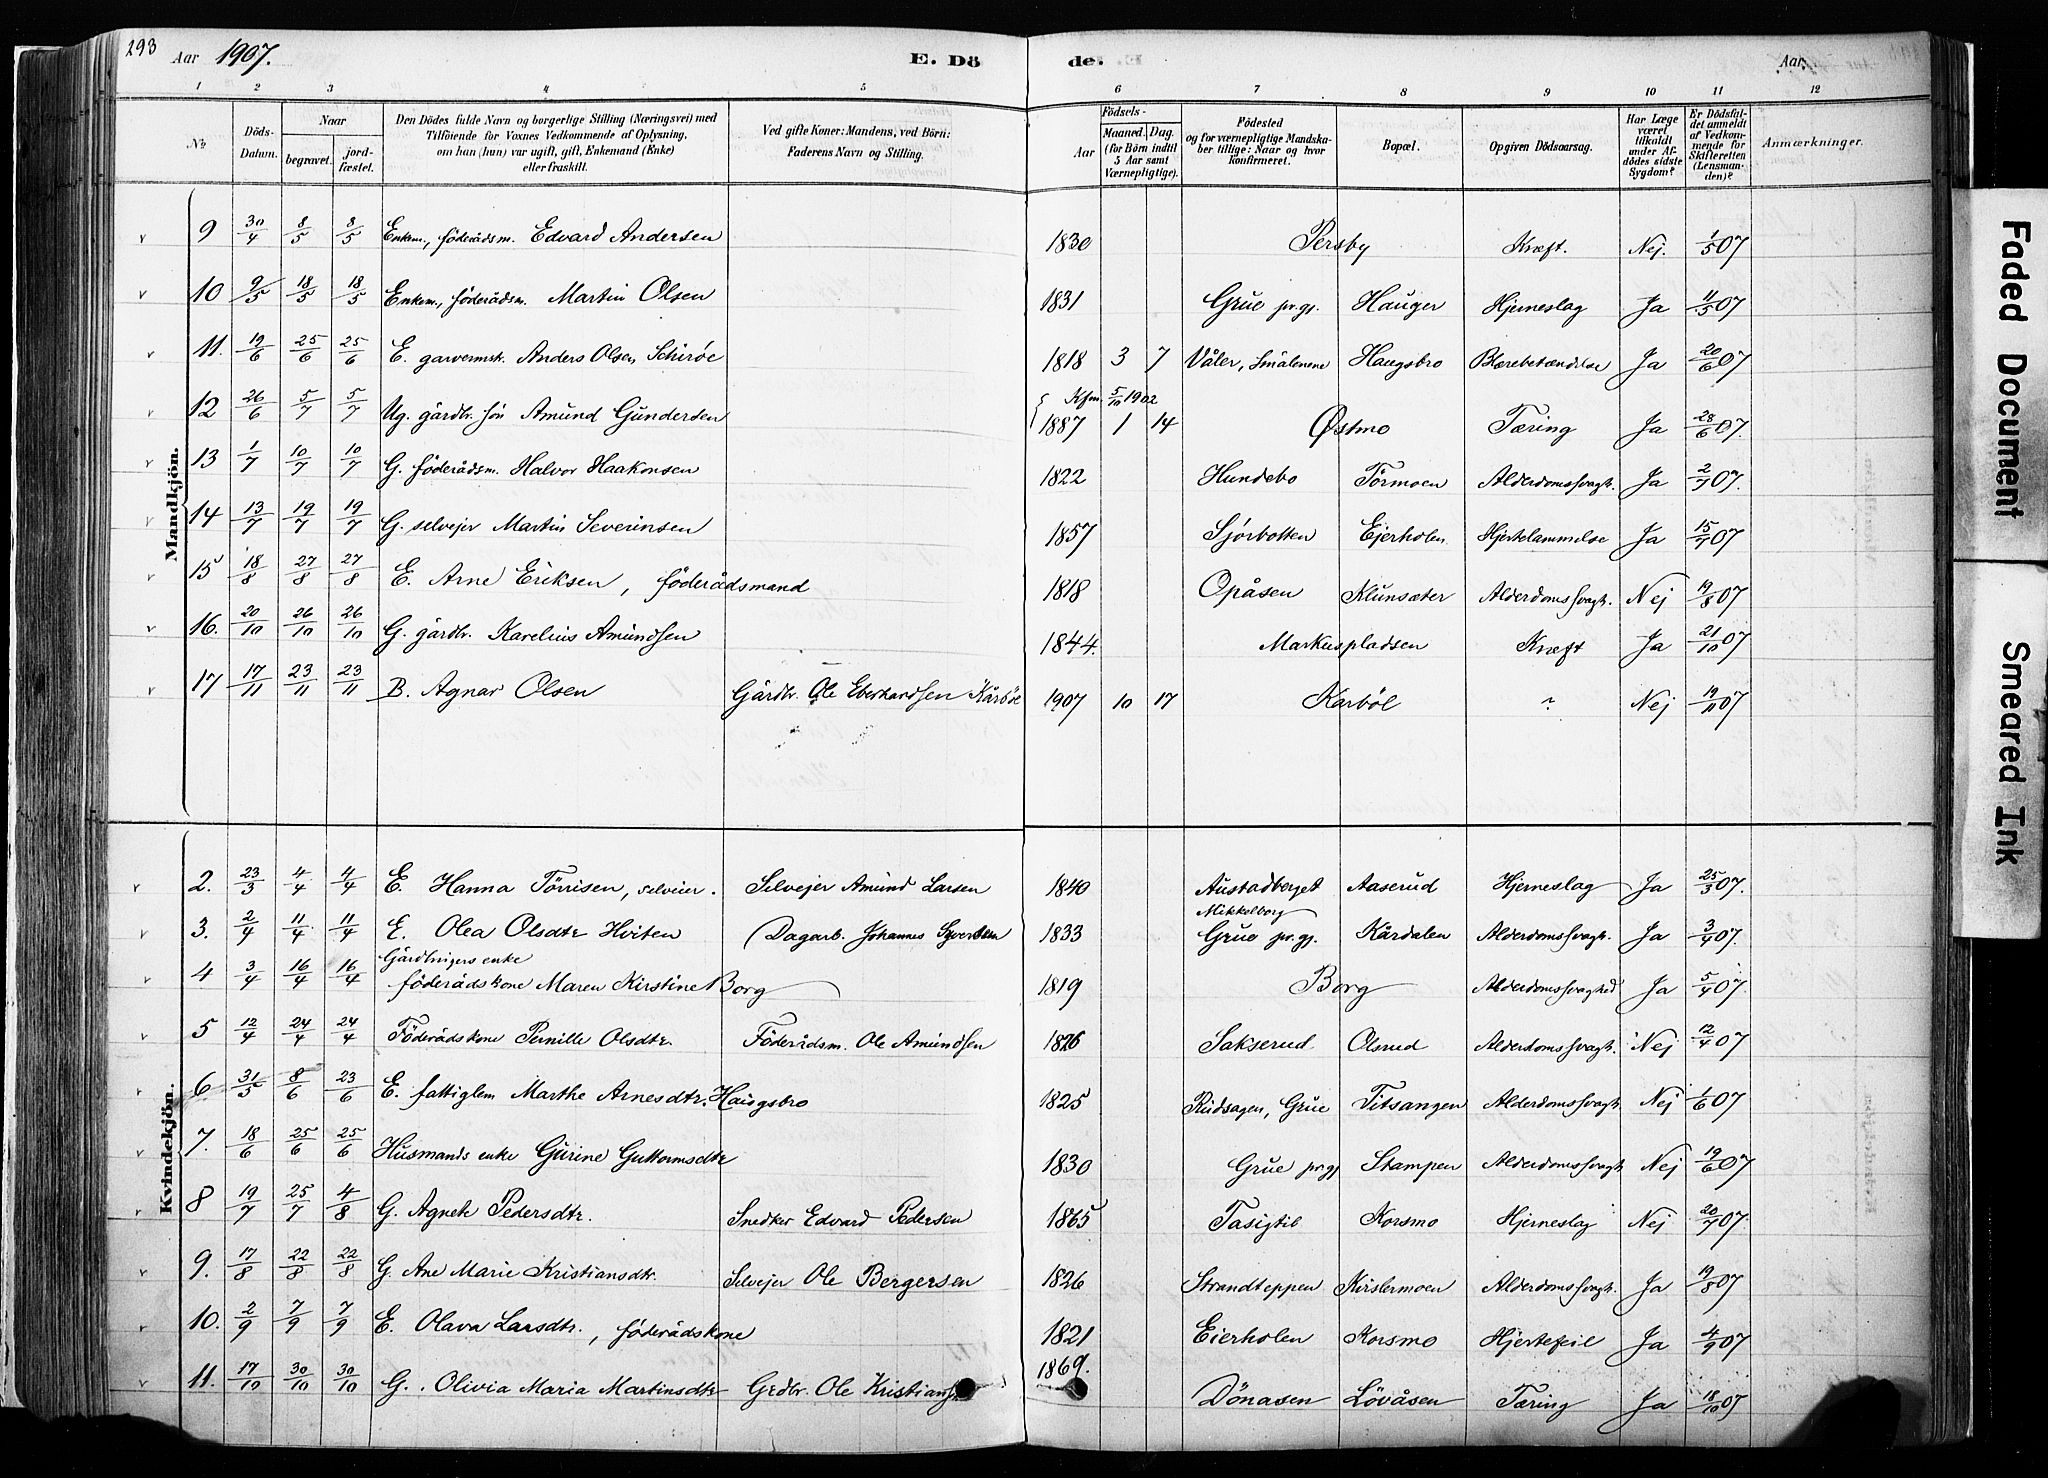 293
Aar 1907.
E. Dö
de.
Aar
1 2 3 4 5 6 7 8 9 10 11 12
No
Döds-Datum.
Naar
begravet.
jord-fæstet.
Den Dödes fulde Navn og borgerlige Stilling (Næringsvei) med
Tilföiende for Voxnes Vedkommende af Oplysning,
om han (hun) var ugift, gift, Enkemand (Enke)
eller fraskilt.
Ved gifte Koner: Mandens, ved Börn:
Faderens Navn og Stilling.
Födsels-
Aar
Maaned. Dag.
(for Börn indtil
5 Aar samt
Værnepligtige).
Födested
og for værnepligtige Mandska-
ber tillige: Naar og hvor
konfirmeret.
Bopæl.
Opgiven Dödsaarsag.
Har Læge
været
tilkaldt
under Af-
dödes sidste
Sygdom?
Er Dödsfal-
det anmeldt
af Vedkom-
mende for
Skifteretten
(Lensman-
den)?
Anmærkninger.
Mandkjön.
9 30/4 8/5 8/5 Enkem., föderådsm. Edvard Andersen 1830 Persby Kræft. Nej. 1/5 07
10 9/5 18/5 18/5 Enkem., föderådsm. Martin Olsen 1831 Grue pr.gj. Hauger Hjerneslag Ja 11/5 07
11. 19/6 25/6 25/6 E. garvermstr. Anders Olsen Schiröe 1818 3 7 Våler, Smålenene Haugsbro Blærebetændelse Ja 20/6 07
Kfm. 5/10 1902
12 26/6 5/7 5/7 Ug. gårdbr. sön Amund Gundersen 1887 1 14 Østmo Tæring Ja 28/6 07.
13 1/7 10/7 10/7 G. föderådsm. Halvor Haakonsen 1822 Hundebo Törmoen Alderdomssvagh. Ja 2/7 07.
14 13/7 19/7 19/7 G. selvejer Martin Severinsen 1857 Sjörbotten Ejerholen Hjertelammelse Ja 15/7 07
15 18/8 27/8 27/8 E. Arne Eriksen, föderådsmand 1818 Opåsen Klunsæter Alderdomssvagh. Nej 19/8 07
16. 20/10 26/10 26/10 G. gårdbr. Karelius Amundsen 1844. Markuspladsen Kræft Ja 21/10 07
17 17/11 23/11 23/11 B. Agnar Olsen Gårdbr. Ole Eberhardsen Kårböl 1907 10 17 Karböl ? Nej 19/11 07
Kvindekjön.
2. 23/3 4/4 4/4 E. Hanna Törrisen, selveier. Selvejer Amund Larsen 1840 Austadberget Aaserud Hjerneslag Ja 25/3 07.
Mikkelborg
3. 2/4 11/4 11/4 E. Olea Olsdtr Hviten Dagarb. Johannes Syvertsen 1833 Grue pr.gj. Kårdalen Alderdomssvagh. Ja 3/4 07.
Gårdbrugers enke
4 3/4 16/4 16/4 föderådskone Maren Kirstine Borg 1819 Borg Alderdomssvaghed Ja 5/4 07.
5 12/4 24/4 24/4 Föderådskone Pernille Olsdtr. Föderådsm. Ole Amundsen 1826 Sakserud Olsrud Alderdomssvagh. Nej 12/4 07
6 31/5 8/6 23/6 E. fattiglem Marthe Arnesdtr. Haugsbro 1825 Rudsagen, Grue Titsangen Alderdomssvagh Nej 1/6 07
7. 18/6 25/6 25/6 Husmands enke Gurine Guttormsdtr 1830 Grue pr.gj Stampen Alderdomssvagh Nej 19/6 07
8 19/7 25/7 4/8 G. Agnete Pedersdtr. Snedker Edvard Pedersen 1865 Tasigtil Korsmo Hjerneslag Nej 20/7 07.
9. 17/8 22/8 22/8 G. Ane Marie Kristiansdtr. Selvejer Ole Bergersen 1826 Strandteppen Kirslermoen Alderdomssvagh. Ja 19/8 07
10. 2/9 7/9 7/9 E. Olava Larsdtr., föderådskone 1821 Eierholen Korsmo Hjertefeil Ja 4/9 07
11. 17/10 30/10 30/10 G. Olivia Maria Martinsdtr Grdbr. Ole Kristians 1869. Dönasen Lövåsen Tæring Ja 18/10 07
Faded Document
Smeared Ink